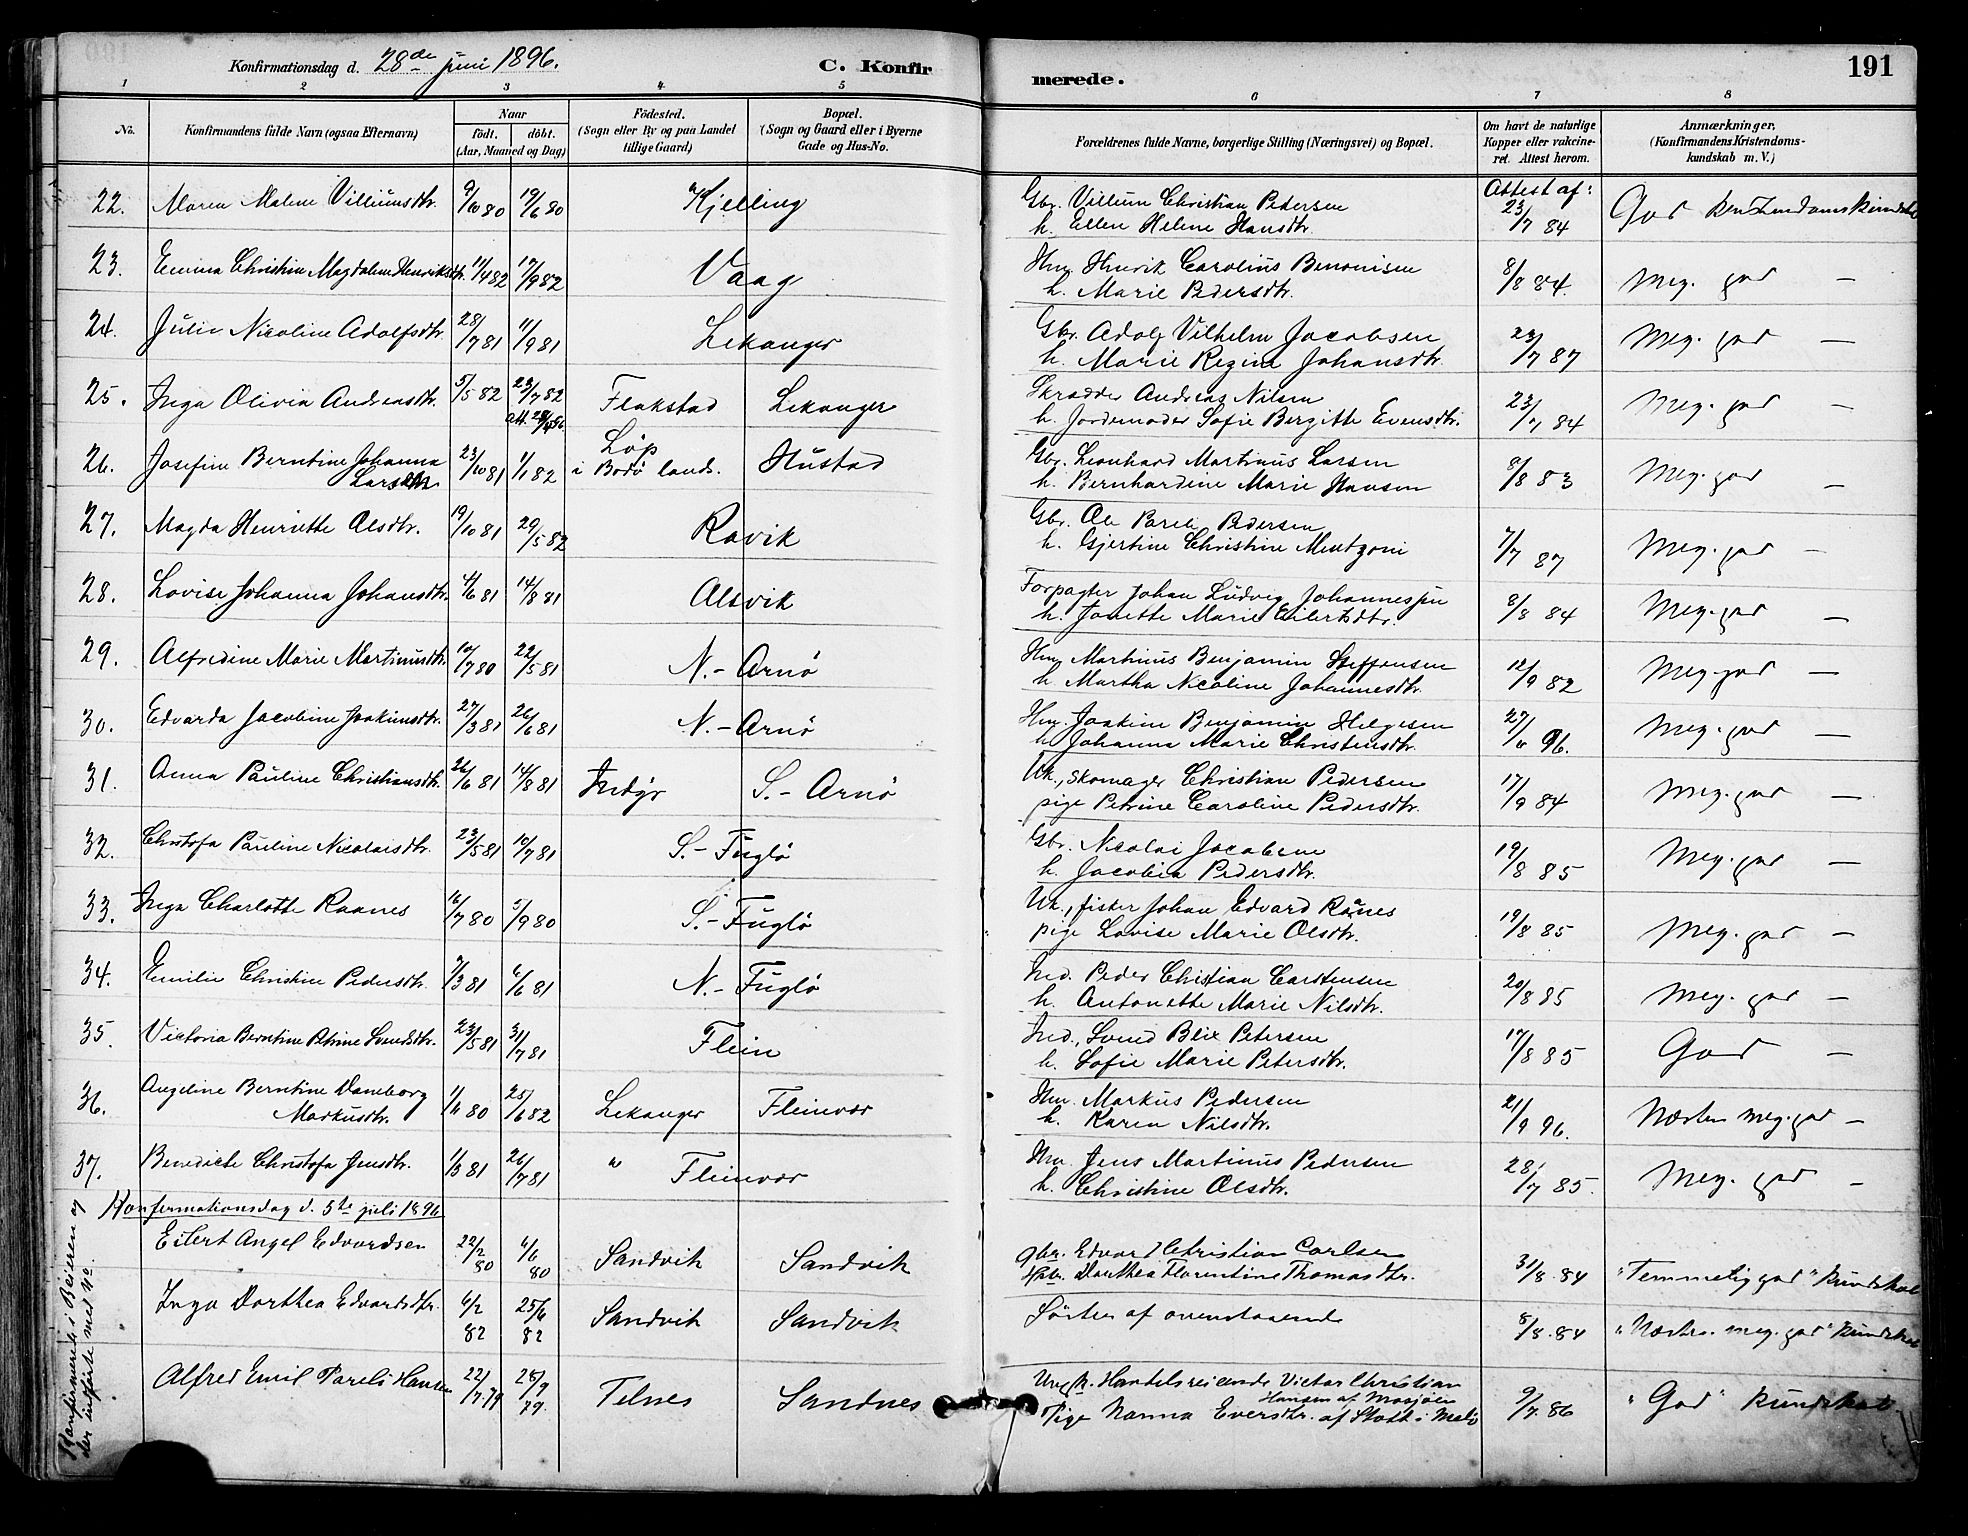 Konfirmationsdag d. 28de juni 1896. C. Konfirmerede. 191
1 2 3 4 5 6 7 8
No. Konfirmandens fulde Navn (ogsaa Efternavn) Naar født. døbt. (Aar, Maaned og Dag) Födested. (Sogn eller By og paa Landet tillige Gaard) Bopæl. (Sogn og Gaard eller i Byerne Gade og Hus-No.
Forældrenes fulde Navne, borgerlige Stilling (Næringsvei) og Bopæl. Om havt de naturlige Kopper eller vakcineret. Attest herom. Anmærkninger, (Konfirmandens Kristendomskundskab m. V.)
22. Maren Malene Villumsdtr. 9/10 80 19/6 80 Kjelling Gbr. Villum Christian Pedersen Attest af:
h. Ellen Helene Hansdtr. 23/7 84 God
23. Emma Christine Magdalene Henriksdtr. 11/4 82 17/9 82 Vaag Hm. Henrik Carolius Benonisen 8/8 84. Meg. god —
h. Marie Pedersdtr.
24. Julie Nicoline Adolfsdtr. 28/7 81 11/9 81 Lekanger Gbr. Adolf Vilhelm Jacobsen 23/7 87 Meg. god —
h. Marie Regine Johansdtr.
25. Inga Olivia Andreasdtr. 5/5 82 23/7 82 Flakstad Lekanger Skrædder Andreas Nilsen 23/7 84 Meg. god —
h. Jordemoder Sofie Bergitte Evensdtr.
26. Josefine Berntine Johanna 23/10 81 1/1 82 Løp i Bodø lands. Hustad Gbr. Leonhard Martinus Larsen 8/8 83 Meg. god —
Larsen h. Bernhardine Marie Hansen
27. Magda Henriette Olsdtr. 19/10 81 29/5 82 Ravik Gbr. Ole Pareli Pedersen 7/7 87 Meg. god —
h. Gjertine Christine Mentzoni
28. Lovise Johanna Johansdtr. 4/6 81 14/8 81 Alsvik Forpagter Johan Ludvig Johannessen 8/8 84 Meg. god —
h. Janette Marie Eilertsdtr.
29. Alfredine Marie Martinusdtr. 10/7 80 22/5 81 N.- Arnö Hm. Martinus Benjamin Steffensen 12/9 82 Meg. god —
h. Martha Nicoline Johannesdtr.
30. Edvarda Jacobine Joakimsdtr. 27/3 81 26/6 81 N.- Arnö Hm. Joakim Benjamin Helgesen 27/6 96. Meg. god —
h. Johanna Marie Christensdtr.
31. Anna Pauline Christiansdtr. 26/6 81 14/8 81 Indyr S.- Arnö Uk., skomager Christian Pedersen 17/9 84 Meg. god —
pige Petrine Caroline Pedersdtr.
32. Christofa Pauline Nicolaisdtr. 23/5 81 10/7 81 S.- Fuglö Gbr. Nicolai Jacobsen 19/8 85 Meg. god —
h. Jacobia Pedersdtr.
33. Inga Charlotte Raanes 16/7 80 5/9 80 S.- Fuglö Uk., fisker Johan Edvard Rånes 19/8 85 Meg. god —
pige Lovise Marie Olsdtr.
34. Emilie Christine Pedersdtr. 7/3 81 6/6 81 N.- Fuglö Ind. Peder Christian Carstensen 20/8 85 Meg. god —
h. Antonette Marie Nilsdtr.
35. Victoria Berntine Petrine Svendsdtr. 23/5 81 31/7 81 Flein Ind., Svend Blix Petersen 17/8 85 God —
h. Sofie Marie Petersdtr.
36. Angeline Berntine Daneborg 25/6 82 Lekanger Fleinvær Hm. Markus Pedersen 21/9 96. Næsten meg. god —
Markusdtr. h. Karen Nilsdtr.
37. Benedicte Christofa Jensdtr. 1/3 81 26/7 81 " Fleinvær Hm. Jens Martinus Pedersen 28/7 85. Meg. god —
h. Christine Olsdtr.
Konfirmationsdag d. 5te juli 1896
Eilert Angel Edvardsen 22/2 80 6/6 80 Sandvik Sandvik Gbr. Edvard Christian Carlsen 31/8. 84 "Temmelig god" kundskab
Dorthea Florentine Thomasdtr.
Inga Dorthea Edvardsdtr. 6/2 82 25/6 82 Sandvik Sandvik Söster af ovenstaaende 8/8. 84 "Næsten meg. god" kundskab
Alfred Emil Pareli Hansen 22/7 79 28/9 79. Telnes Sandnes Handelsreisende Victor Christian 9/7. 86 "God" kundskab
Hansen af Mosjöen
Pige Nanna Eversdtr. af Stott i Melö
Konfirmerede i Beieren og
der indførte med No.